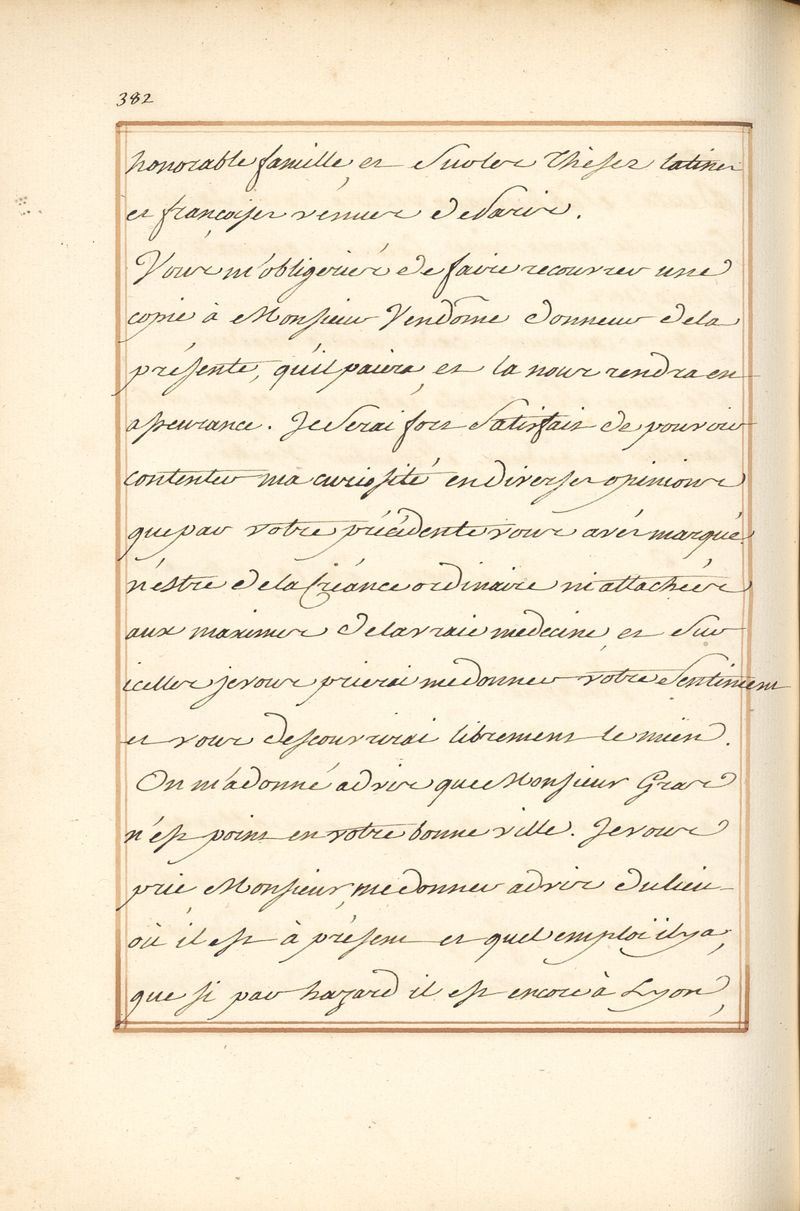 382
honorable famille, et sur les Theses latines
et françoises venües de Paris.
Vous m'obligeriés de faire recouvrer une
copie à Monsieur Vendôme donneur de la
présente, qu'il paiera, et la nous rendra en
asseurance. Je serai fort satisfait de pouvoir
contenter ma curiosité en diverses opinions
que par votre précédente vous avés marqué
n'estre de la créance ordinaire ni attachées
aux maximes de la vraie medecine, et sur
icelles je vous prierai me donner votre sentiment
et vous descouvrirai librement le mien.
On m'a donné advis que Monsieur Gras
n'est point en votre bonne ville. Je vous
prie Monsieur, me donner advis du lieu
où il est à présent et quel emploi il y a,
que si par hazard il est encore à Lyon,